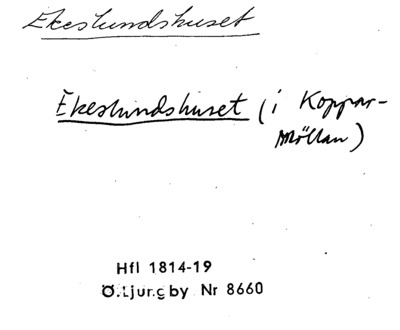 Ekeslundshuset
Ekeslundshuset (i Koppar-
möllan)
Hfl 1814-19
Ö.Ljungby Nr 8660